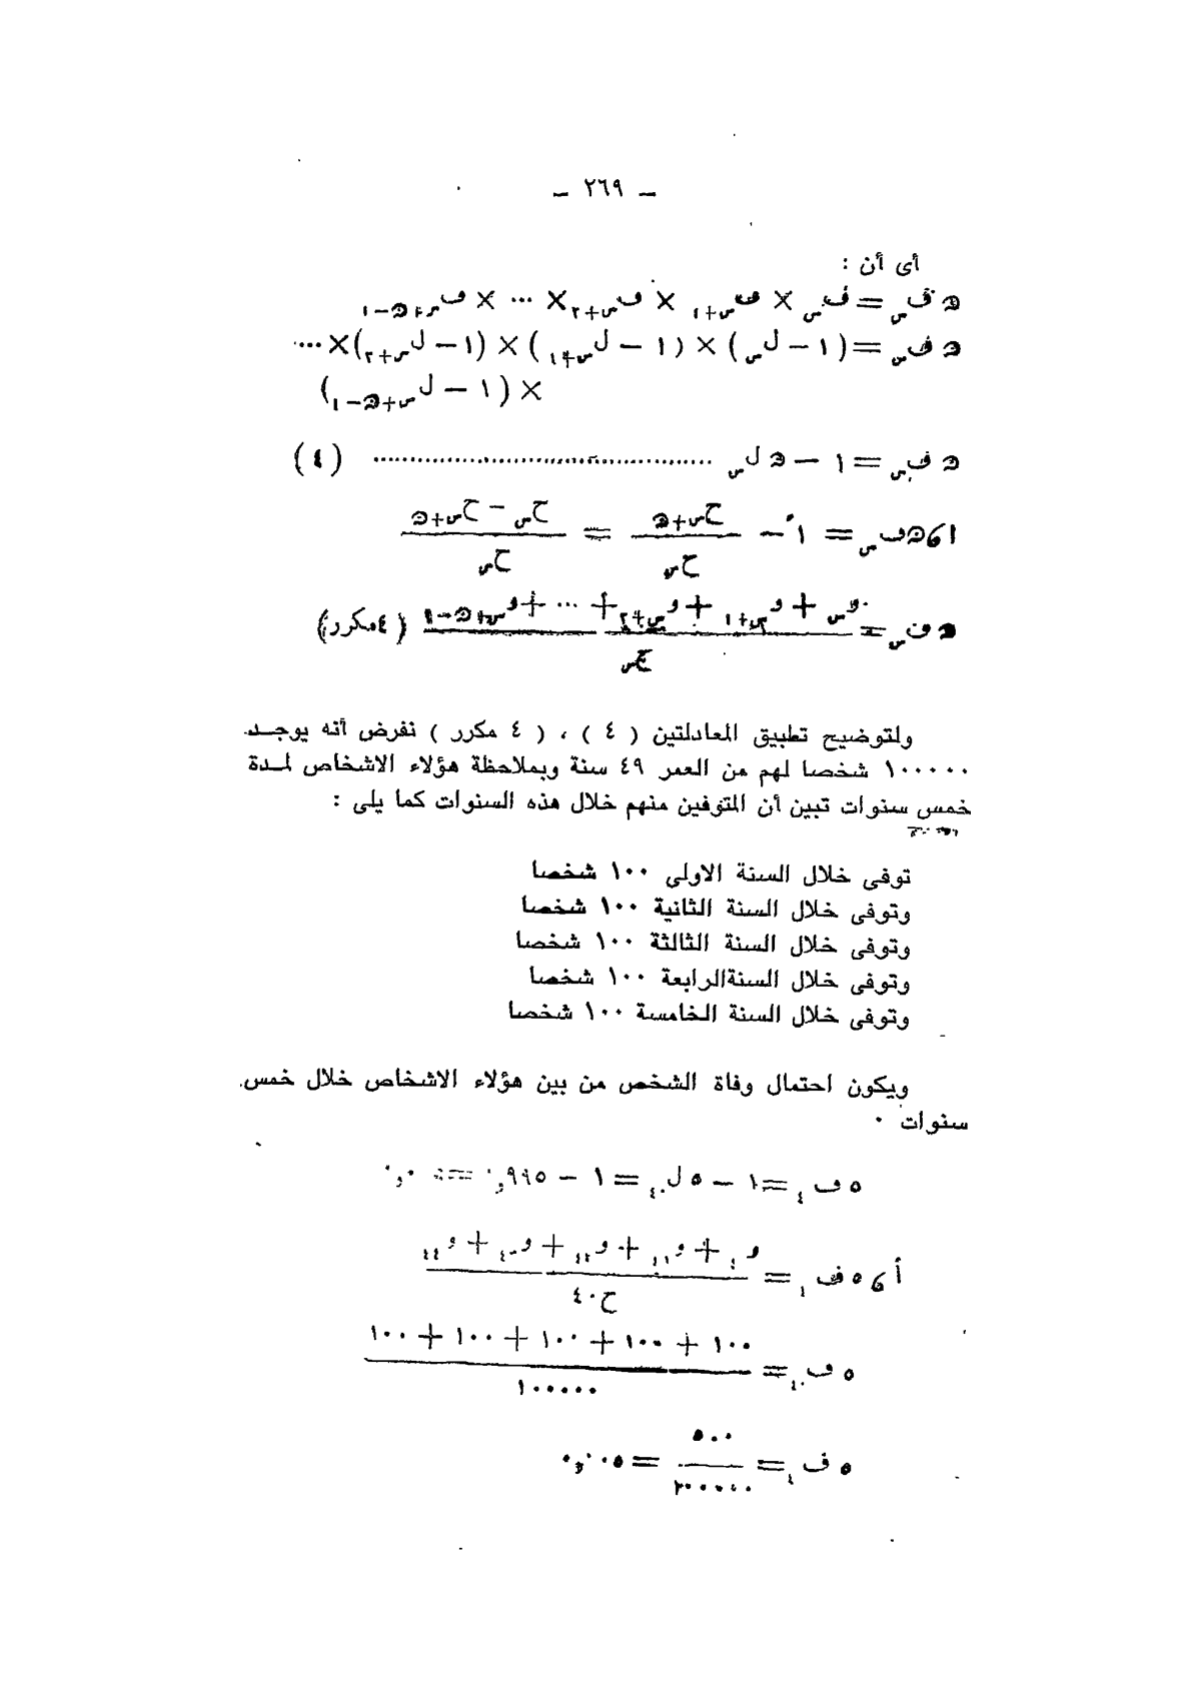 — ٢٦٩ —
أى أن :
ن ف س = ف س × ف س+١ × ف س+٢ × ... × ف س+ن-١
ن ف س = (١ - ل س) × (١ - ل س+١) × (١ - ل س+٢) × ...
× (١ - ل س+ن-١)
ن ف س = ١ - ن ل س .......................................... (٤)
ا ﻭ ن ف س = ١ - ح س+ن / ح س = ح س - ح س+ن / ح س
ن ف س = و س + و س+١ + و س+٢ + ... + و س+ن-١ / ح س (٤ مكرر)
ولتوضيح تطبيق المعادلتين ( ٤ ) ، ( ٤ مكرر ) نفرض أنه يوجــد
١٠٠٠٠٠ شخصا لهم من العمر ٤٩ سنة وبملاحظة هؤلاء الاشخاص لمــدة
خمس سنوات تبين أن المتوفين منهم خلال هذه السنوات كما يلى :
توفى خلال السنة الاولى ١٠٠ شخصا
وتوفى خلال السنة الثانية ١٠٠ شخصا
وتوفى خلال السنة الثالثة ١٠٠ شخصا
وتوفى خلال السنةالرابعة ١٠٠ شخصا
وتوفى خلال السنة الخامسة ١٠٠ شخصا
ويكون احتمال وفاة الشخص من بين هؤلاء الاشخاص خلال خمس
سنوات ٠
٥ ف ٤ = ١ - ٥ ل ٤٠ = ١ - ٩٩٥,٠ =
أ ﻭ ٥ ف = و + و + و + و + و / ح ٤٠
٥ ف ٤٠ = ١٠٠ + ١٠٠ + ١٠٠ + ١٠٠ + ١٠٠ / ١٠٠٠٠٠
٥ ف ٤ = ٥٠٠ / = ٠٠٥,٠